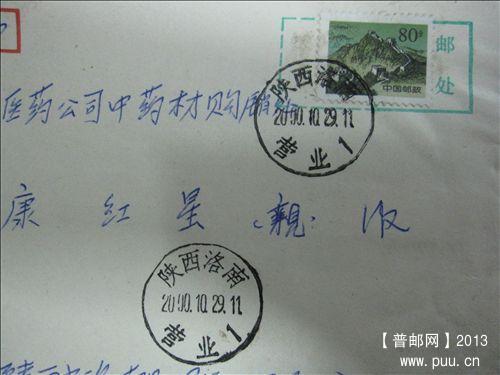 80分
中国邮政
邮
处
陕西洛南
2000.10.29.11
营业 1
医药公司中药材购
康红星 親收
陕西洛南
2000.10.29.11
营业 1
【普邮网】2013
www.puu.cn